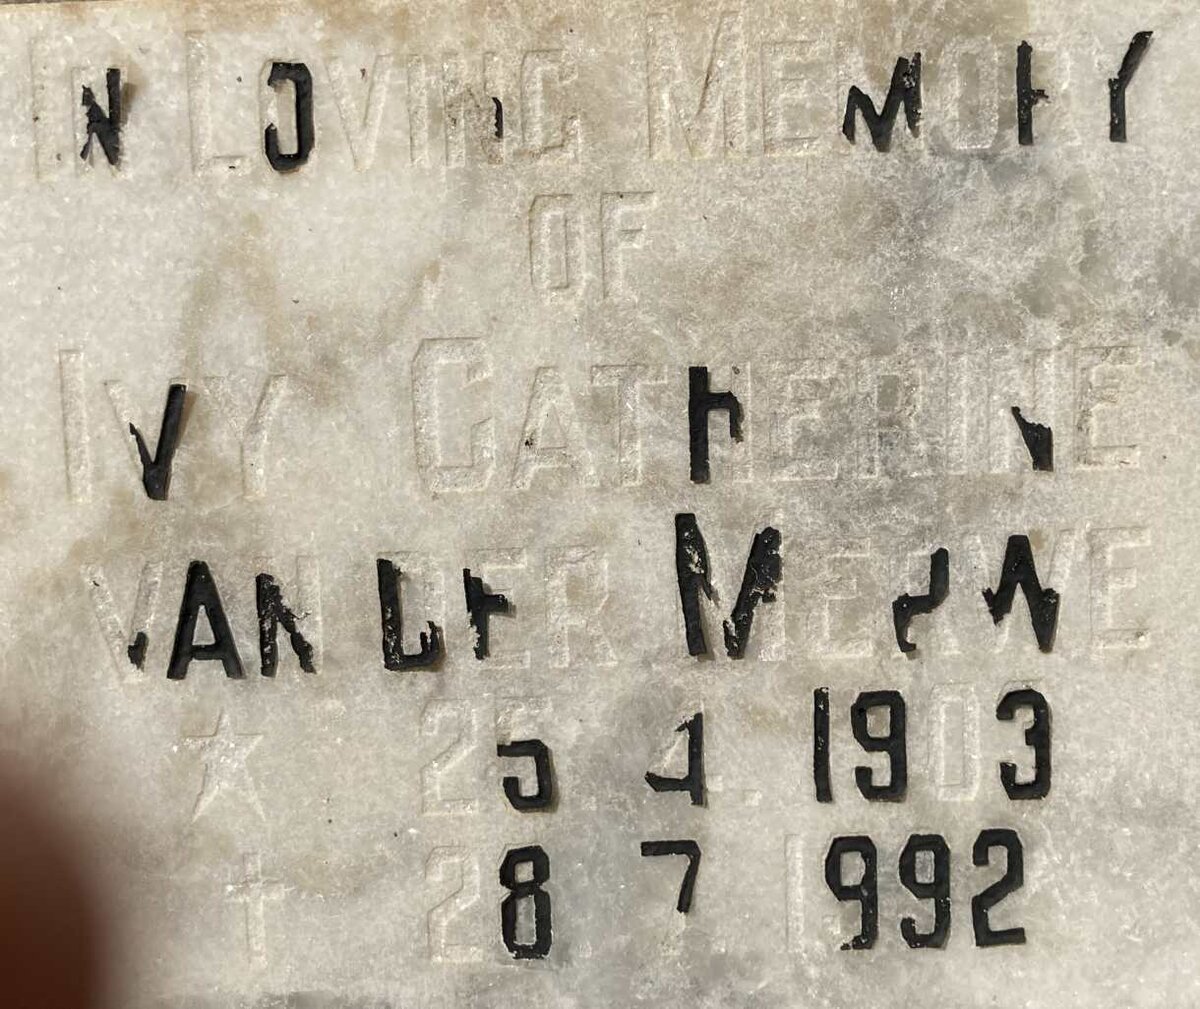 IN LOVING MEMORY
OF
IVY CATHERINE
VAN DER MERWE
☆ 25. 4. 1903
† 28. 7. 1992